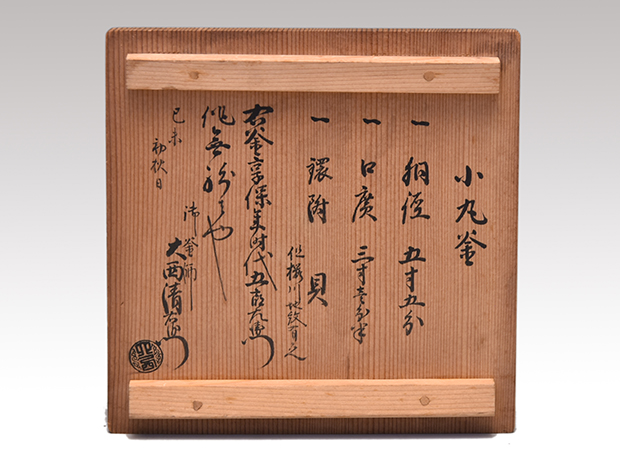 小丸釜
一 胴径 五寸五分
一 口廣 三寸壱分半
一 鐶附 貝
但桜川地紋有之
右釜享保年時代五郎左衛門
作無紛者也
己未
初秋日
御釜師
大西清右衛門